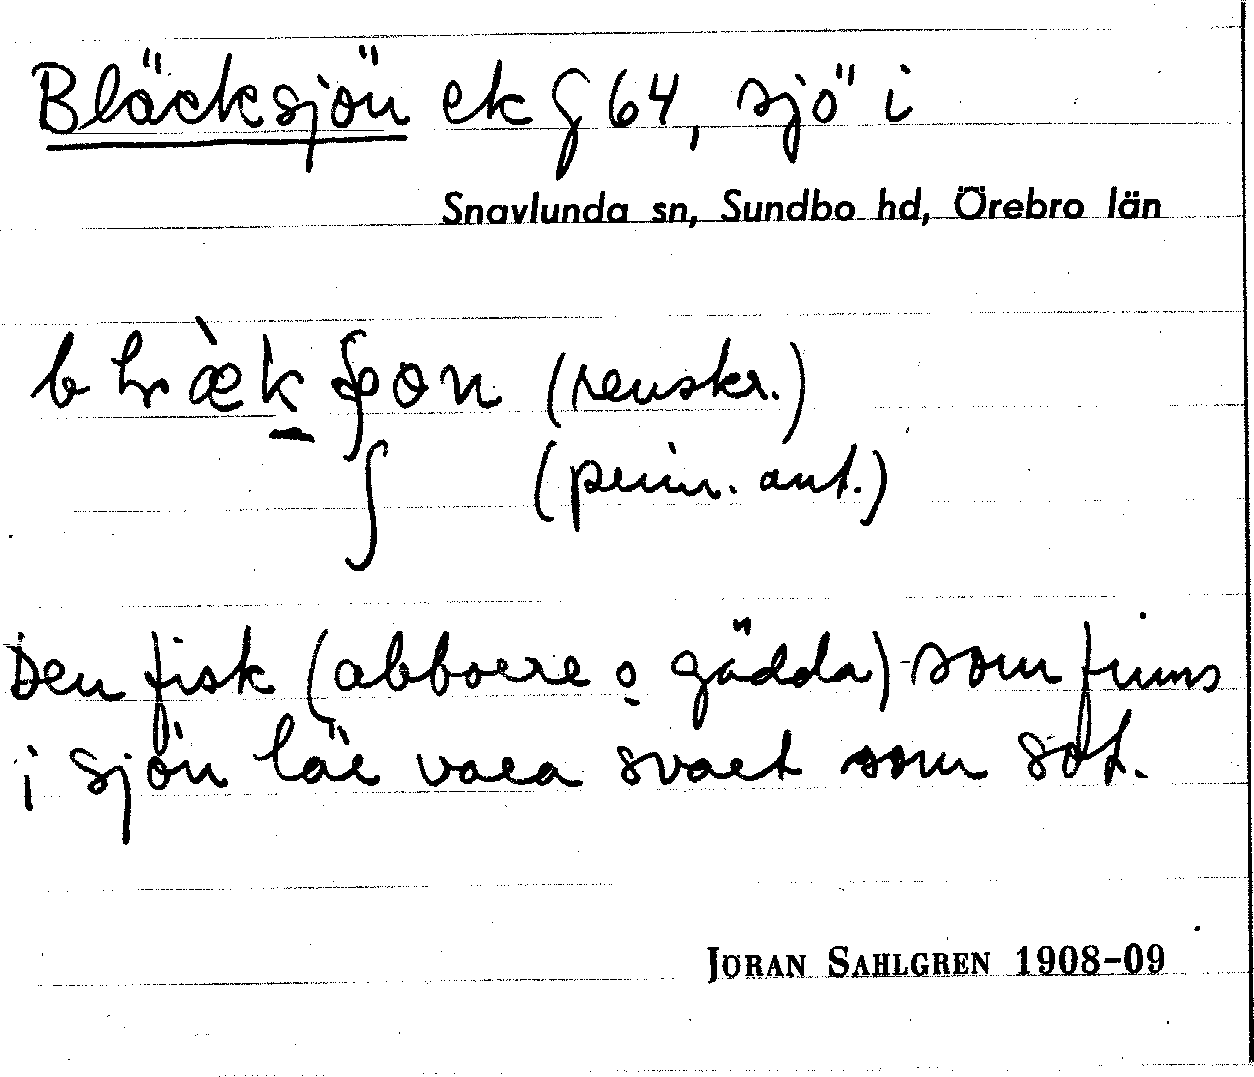 Bläcksjön ek G 64, sjö i
Snavlunda sn, Sundbo hd, Örebro län
(renskr.)
∫ (penn. ant.)
Den fisk (abborre o gädda) som finns
i sjön lär vara svart som sot.
JÖRAN SAHLGREN 1908-09